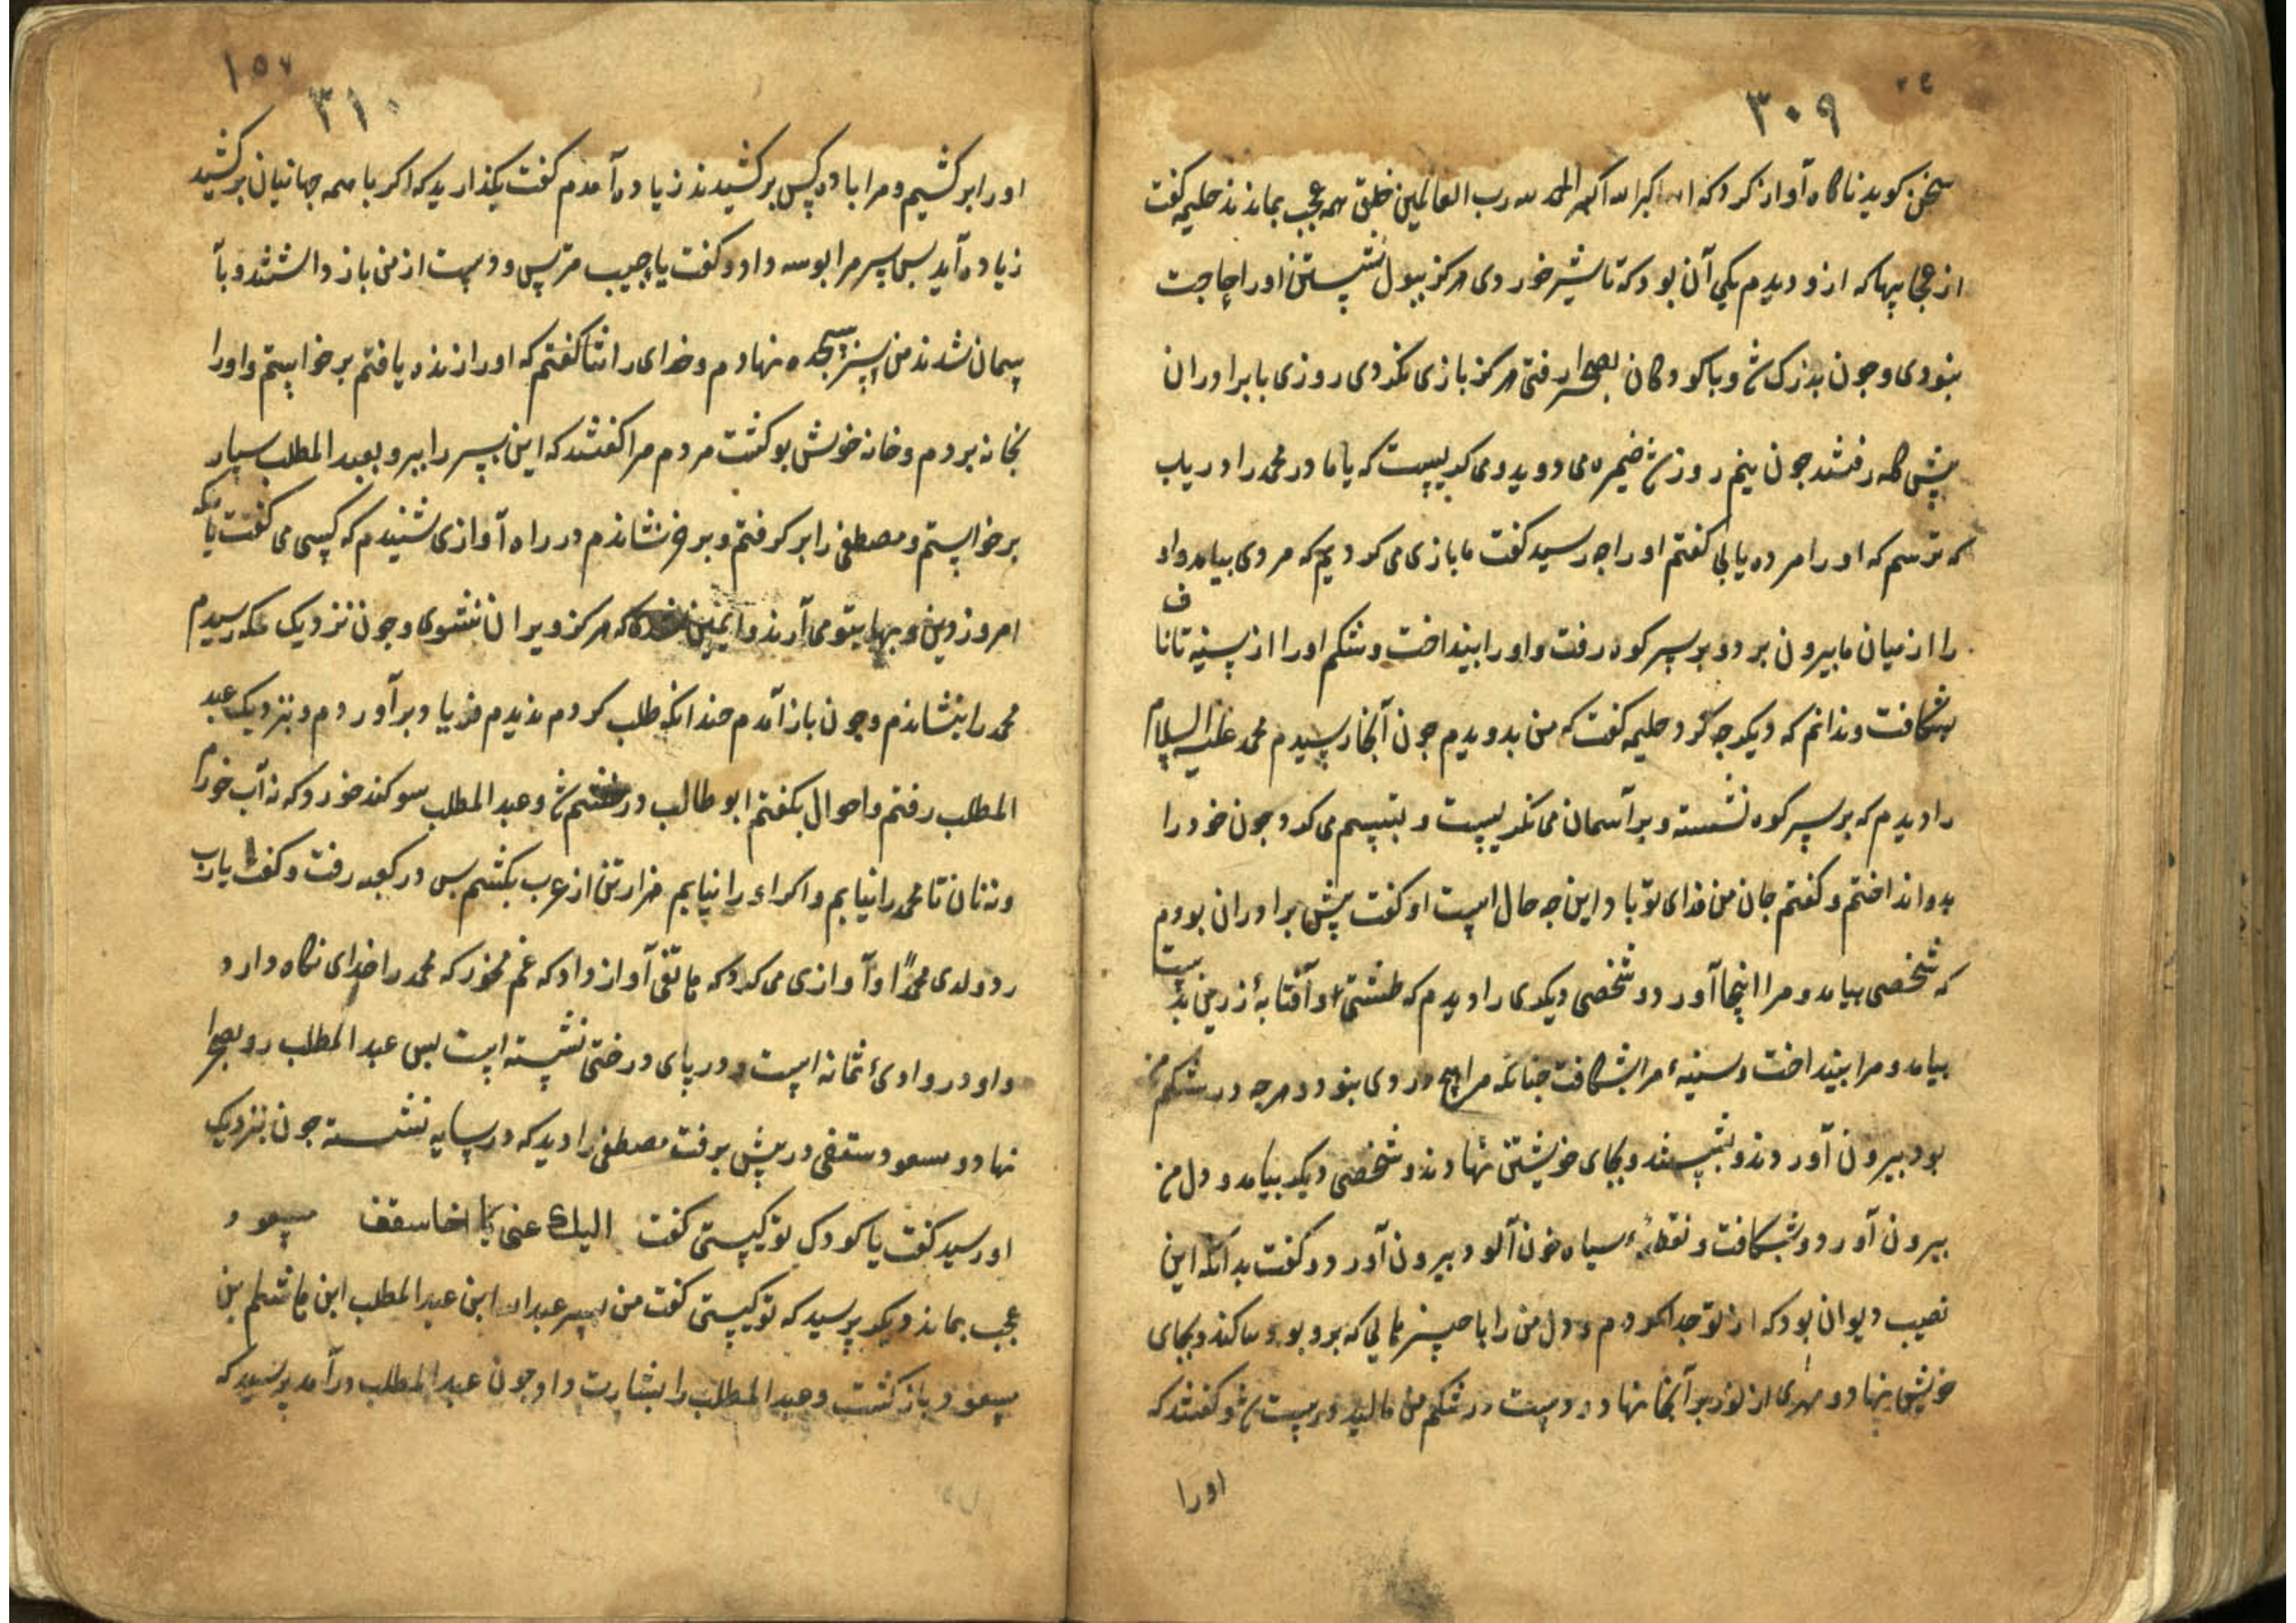 ۳۰۹
سخن کوید ناکاه آواز کرد که الله اکبر الله اکبر الحمد لله رب العالمین خلق همه عجب بماندند حلیمه کفت
از عجایبها که ازو دیدم یکی آن بود که تا شیر خوردی هرکز ببول شستن اورا حاجت
نبودی و جون بزرک ش و با کودکان بصحرا رفتی هرکز بازی نکردی روزی با برادران
پیش کله رفتند جون نیم روز ش ضمیره می دوید و می کریست که یا مادر محمد را دریاب
که ترسم که اورا مرده یابی کفتم اورا جه رسید کفت ما بازی می کردیم که مردی بیامد و او
را از میان ما بیرون برد و بر سر کوه رفت و اورا بینداخت و شکم اورا از سینه تا ناف
بشکافت و ندانم که دیکر جه کرد حلیمه کفت که من بدویدم جون آنجا رسیدم محمد علیه السلام
را دیدم که بر سر کوه نشسته و بر آسمان می نکریست و تبسم می کرد جون خود را
بدو انداختم و کفتم جان من فدای تو باد این جه حال است او کفت پیش برادران بودم
که شخصی بیامد و مرا اینجا آورد و شخصی دیکری را دیدم که طشتی و آفتابهٔ زرین بدست
بیامد و مرا بینداخت و سینهٔ مرا بشکافت جنانکه مرا هیچ دردی نبود و هرجه در شکم من
بود بیرون آوردند و بشستند و بجای خویشتن نهادند و شخصی دیکر بیامد و دل من
بیرون آورد و بشکافت و نقطهٔ سیاه خون آلود بیرون آورد و کفت بدانکه این
نصیب دیوان بود که از تو جدا کردم و دل من را با جیزهایی که برو بود کند و بجای
خویش نهاد و مهری از نور بر آنجا نهاد و دست در شکم من مالید درست ش و کفتند که
اورا
۱۵۷
۳۱۰
اورا برکشیم و مرا با ده کس برکشیدند زیاده آمدم کفت بکذارید که اکر با همه جهانیان برکشید
زیاده آید بس سر مرا بوسه داد و کفت یا حبیب مترس و دست از من باز داشتند و بآ
سمان شدند من سر بسجده نهادم و خدای را ثنا کفتم که اورا زنده یافتم برخواستم و اورا
بخانه بردم و خانه خوش بو کشت مردم مرا کفتند که این پسر را ببر و بعبد المطلب سپار
برخواستم و مصطفی را بر کرفتم و بر خر نشاندم در راه آوازی شنیدم که کسی می کفت یا مکه
امروز دین و بهابتو می آرند و ایمن که هرکز ویران نشوی و جون نزدیک مکه رسیدم
محمد را بنشاندم و جون باز آمدم جندانکه طلب کردم ندیدم فریاد برآوردم و بنزدیک عبد
المطلب رفتم و احوال بکفتم ابو طالب در خشم ش و عبد المطلب سوکند خورد که نه آب خورم
و نه نان تا محمد را نیابم و اکر او را نیابم هزار تن از عرب بکشم بس در کعبه رفت و کفت یا رب
رد ولدی محمدًا و آوازی می کرد که هاتفی آواز داد که غم مخور که محمد را خدای نکاه دارد
و او در وادی ثمانه است و در پای درختی نشسته است بس عبد المطلب رو بصحرا
نهاد و مسعود ستفی در پیش برفت مصطفی را دید که در سایه نشسته جون بنزدیک
او رسید کفت یا کودک تو کیستی کفت الیک عنی یا اخا سقف مسعود
عجب بماند دیکر پرسید که تو کیستی کفت من پسر عبد الله ابن عبد المطلب ابن هاشم بن
مسعود باز کشت و عبد المطلب را بشارت داد جون عبد المطلب درآمد پرسید که